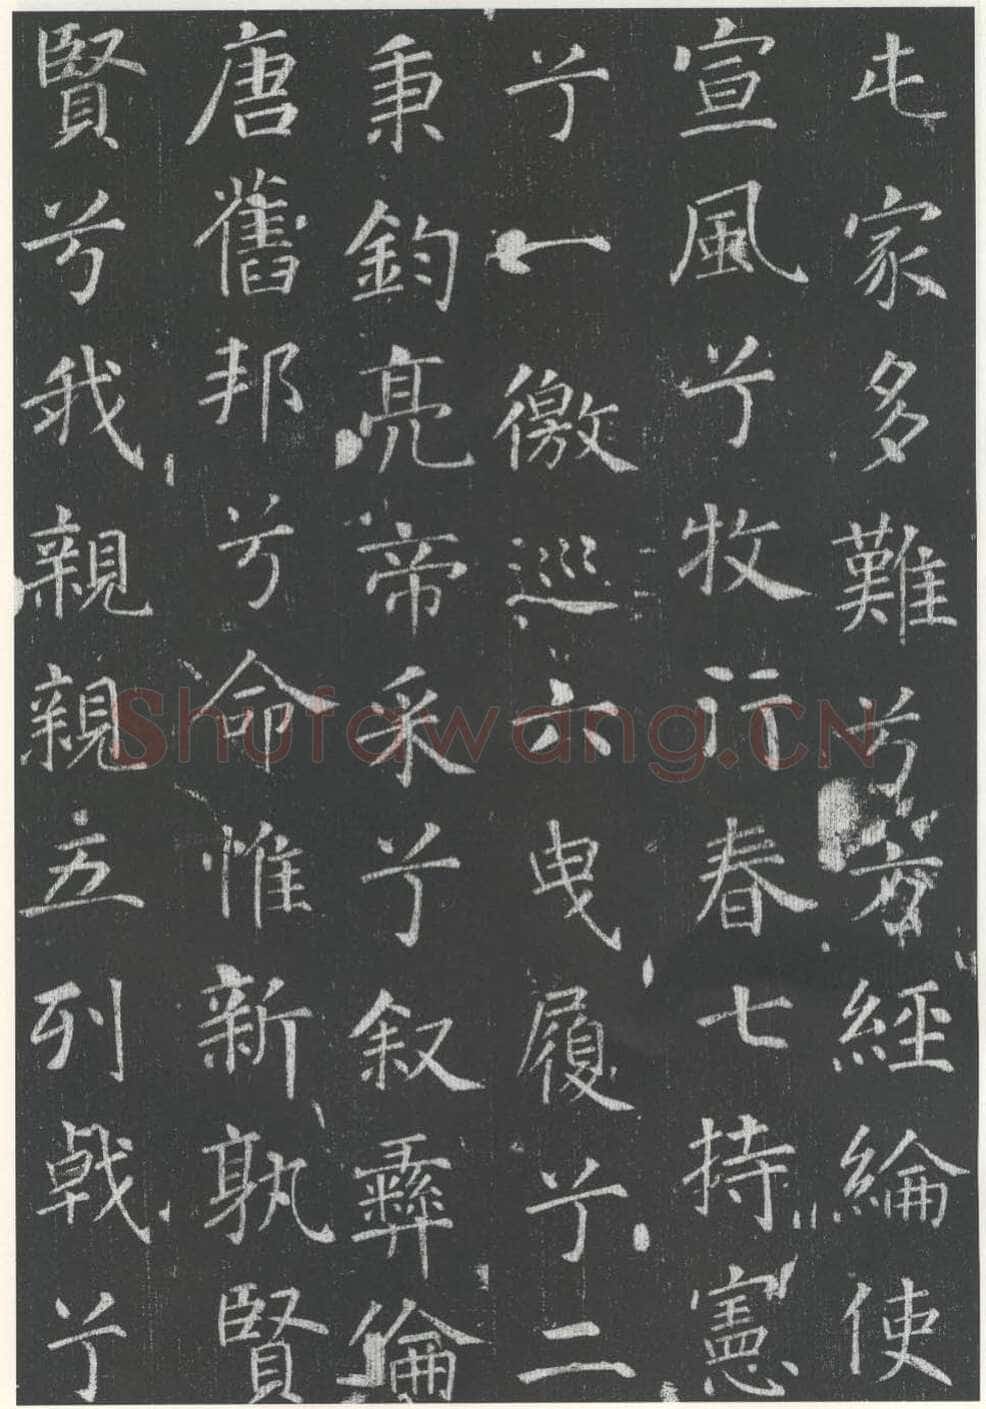 屯家多難兮方經綸使
宣風兮牧行春七持憲
兮一徼巡六曳履兮二
秉鈞亮帝采兮叙彝倫
唐舊邦兮命惟新孰賢
賢兮我親親五列戟兮
Shufawang.CN